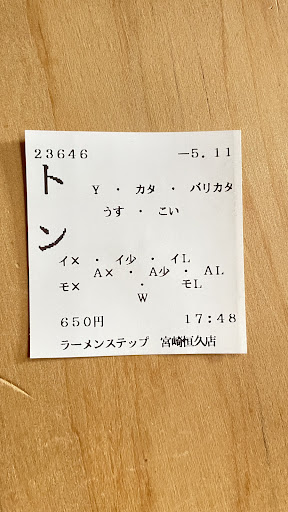 23646 －5.11
トン
Y ・ カタ ・ バリカタ
うす ・ こい
イ× ・ イ少 ・ イL
A× ・ A少 ・ AL
モ× ・ モL
W
650円 17:48
ラーメンステップ 宮崎恒久店